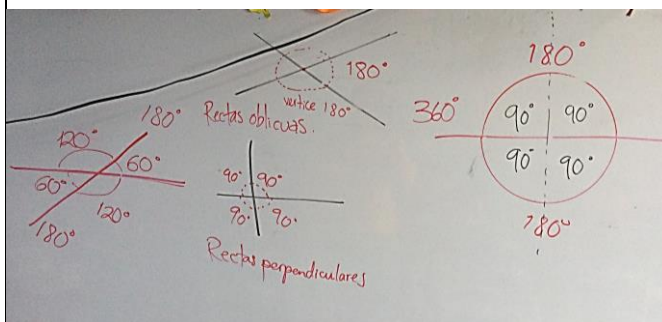 180°
vertice 180°
Rectas oblicuas.
180°
120°
60°
60°
120°
180°
90° 90°
90° 90°
Rectas perpendiculares
180°
360°
90° 90°
90° 90°
180°